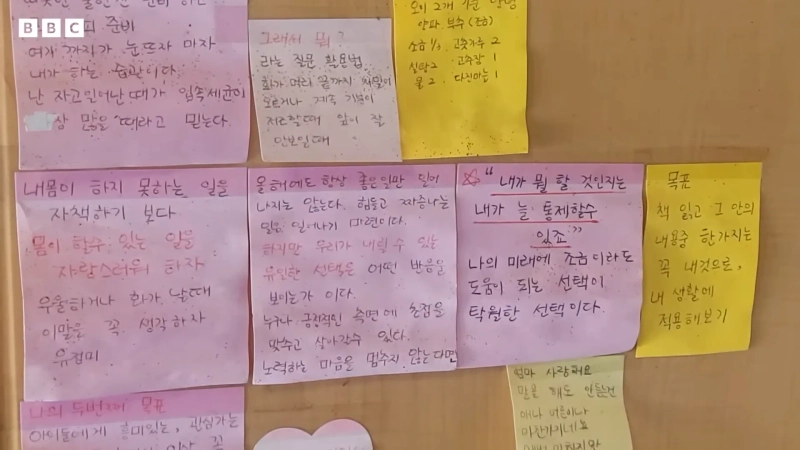 BBC
준비
여가 까지가 눈뜨자 마자
내가 하는 습관이다.
난 자고일어난때가 입속세균이
상 많을 때라고 믿는다.
그래서 뭐?
라는 질문 활용법
화가 머리 끝까지 치밀어
오르거나 계속 기분이
저조할때 앞이 잘
안보일때
오이 2개
양파
소금 ½ 고춧가루 2
설탕 2 고추장 1
물 2 다진마늘 1
내몸이 하지 못하는 일을
자책하기 보다
몸이 할수 있는 일을
자랑스러워 하자
우울하거나 화가 날때
이말을 꼭 생각하자
유정미
올해에도 항상 좋은일만 일어
나지는 않는다. 힘들고 짜증나는
일도 일어나기 마련이다.
하지만 우리가 내릴 수 있는
유일한 선택은 어떤 반응을
보이는가 이다.
누구나 긍정적인 측면에 초점을
맞추고 살아갈수 있다.
노력하는 마음을 멈추지 않는다면
"내가 뭘 할 것인지는
내가 늘 통제할수
있죠"
나의 미래에 조금이라도
도움이 되는 선택이
탁월한 선택이다.
목표
책 읽고 그 안의
내용중 한가지는
꼭 내것으로,
내 생활에
적용해보기
나의 두번째 목표
아이들에게 흥미있는, 관심가는
엄마 사랑해요
말을 해도 안들는건
애나 어른이나
마찬가지네요